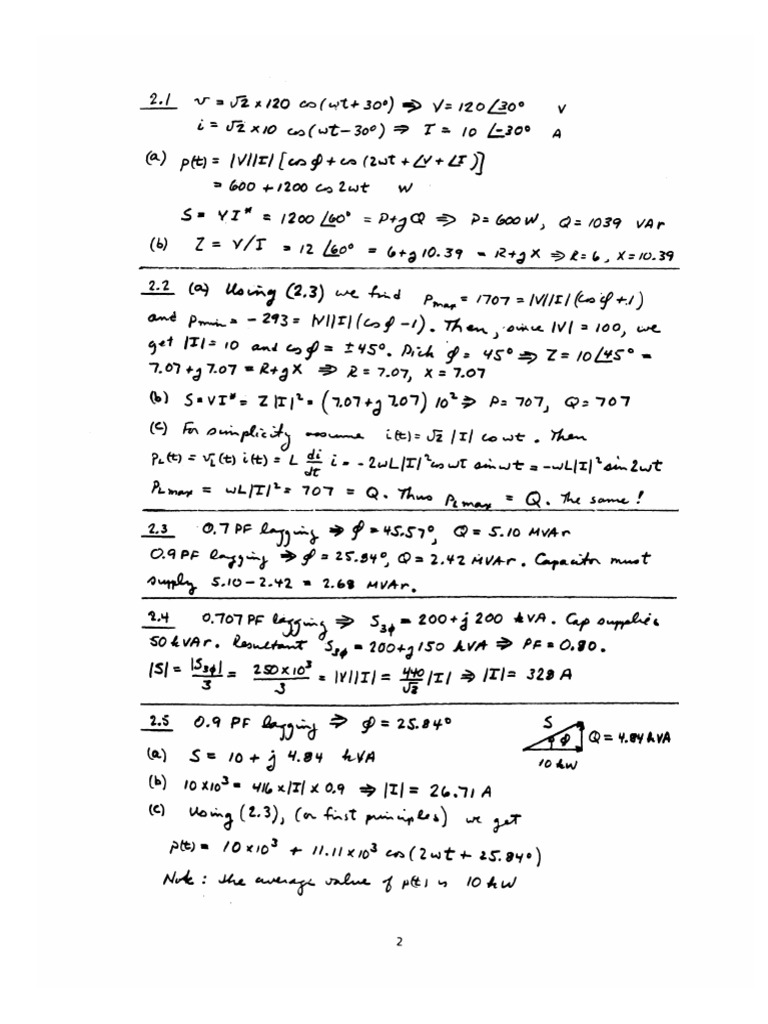 2.1 v = √2 × 120 cos(ωt + 30°) ⇒ V = 120∠30° V
i = √2 × 10 cos(ωt − 30°) ⇒ I = 10∠−30° A
(a) p(t) = |V||I|[cos φ + cos(2ωt + ∠V + ∠I)]
= 600 + 1200 cos 2ωt W
S = VI* = 1200∠60° = P + jQ ⇒ P = 600 W, Q = 1039 VAr
(b) Z = V/I = 12∠60° = 6 + j10.39 = R + jX ⇒ R = 6, X = 10.39
2.2 (a) Using (2.3) we find Pmax = 1707 = |V||I|(cos φ + 1)
and Pmin = −293 = |V||I|(cos φ − 1). Then, since |V| = 100, we
get |I| = 10 and cos φ = ±45°. Pick φ = 45° ⇒ Z = 10∠45° =
7.07 + j7.07 = R + jX ⇒ R = 7.07, X = 7.07
(b) S = VI* = Z|I|² = (7.07 + j7.07) 10² ⇒ P = 707, Q = 707
(c) For simplicity assume i(t) = √2 |I| cos ωt. Then
PL(t) = vL(t) i(t) = L di/dt i = −2ωL|I|² cos ωt sin ωt = −ωL|I|² sin 2ωt
PLmax = ωL|I|² = 707 = Q. Thus PLmax = Q. The same!
2.3 0.7 PF lagging ⇒ φ = 45.57°, Q = 5.10 MVAr
0.9 PF lagging ⇒ φ = 25.84°, Q = 2.42 MVAr. Capacitor must
supply 5.10 − 2.42 = 2.68 MVAr.
2.4 0.707 PF lagging ⇒ S3φ = 200 + j200 kVA. Cap supplies
50 kVAr. Resultant S3φ = 200 + j150 kVA ⇒ PF = 0.80.
|S| = |S3φ|/3 = 250 × 10³/3 = |V||I| = 440/√3 |I| ⇒ |I| = 328 A
2.5 0.9 PF lagging ⇒ φ = 25.84°
S φ Q = 4.84 kVA
10 kW
(a) S = 10 + j 4.84 kVA
(b) 10 × 10³ = 416 × |I| × 0.9 ⇒ |I| = 26.71 A
(c) Using (2.3), (or first principles) we get
p(t) = 10 × 10³ + 11.11 × 10³ cos(2ωt + 25.84°)
Note: the average value of p(t) is 10 kW
2